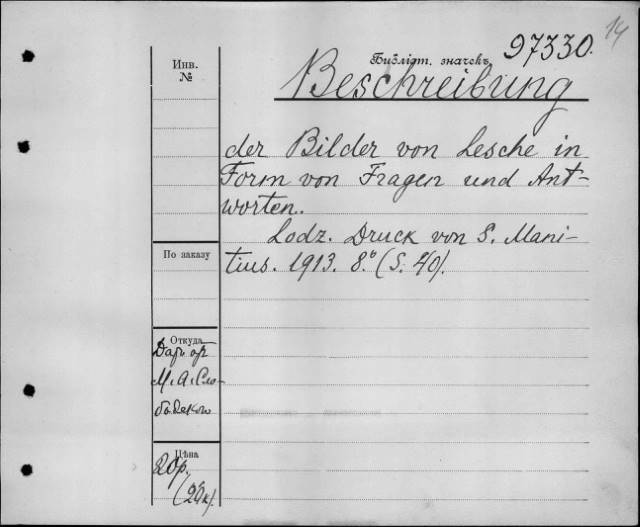 14
97330.
Библіот. значекъ
Инв.
№
Beschreibung
der Bilder von Lesche in
Form von Fragen und Ant-
worten.
Lodz. Druck von S. Mani-
tius. 1913. 8.° (S. 40).
По заказу
Откуда
Даръ отъ
М. А. Сло-
Цѣна
20р.